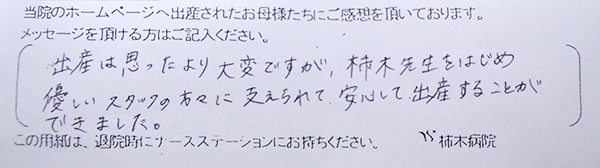 当院のホームページへ出産されたお母様たちにご感想を頂いております。
メッセージを頂ける方はご記入ください。
出産は思ったより大変ですが、柿木先生をはじめ
優しいスタッフの方々に支えられて、安心して出産することが
できました。
この用紙は、退院時にナースステーションにお持ちください。 柿木病院